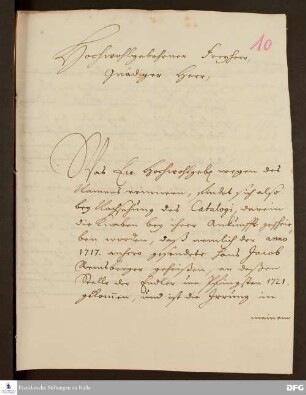 10
Hochwohlgebohrner Freyherr,
Gnädiger Herr,
Was Ew. Hochwohlgeb. wegen des
Namens erinnern, findet sich also
bey Nachsehung des Catalogi, darein
die Knaben bey ihrer Ankunfft geschrie
ben worden, daß nemlich der anno
1717. anhero gesendete Hans Jacob
geheißen, an deßen
Stelle der Endler um Pfingsten 1721.
gekommen, und ist die Irrung in
meinem
Franckesche Stiftungen zu Halle
DFG